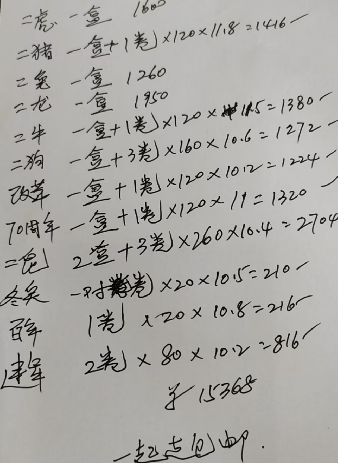 二虎 一盒 1600
二猪 一盒+1卷)×120×11.8=1416
二兔 一盒 1260
二龙 一盒 1950
二牛 一盒+1卷)×120×11.5=1380
二狗 一盒+3卷)×160×10.6=1272
改革 一盒+1卷)×120×10.2=1224
70周年 一盒+1卷)×120×11=1320
二 2盒+3卷)×260×10.4=2704
冬奥 一对 卷)×20×10.5=210
百年 1卷)×20×10.8=216
建军 2卷)×80×10.2=816
15368
一起走包邮.